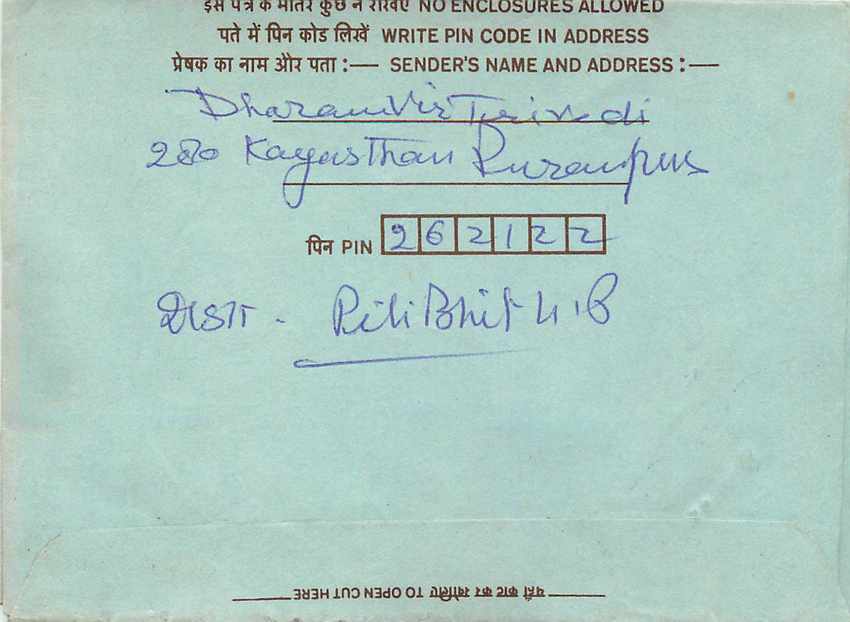 इस पत्र के भीतर कुछ न रखिए NO ENCLOSURES ALLOWED
पते में पिन कोड लिखें WRITE PIN CODE IN ADDRESS
प्रेषक का नाम और पता :— SENDER'S NAME AND ADDRESS :—
Dharamvir Trivedi
280 Kayasthan Puranpur
पिन PIN 262122
Distt - PiliBhit U.P
यहाँ काट कर खोलिए TO OPEN CUT HERE